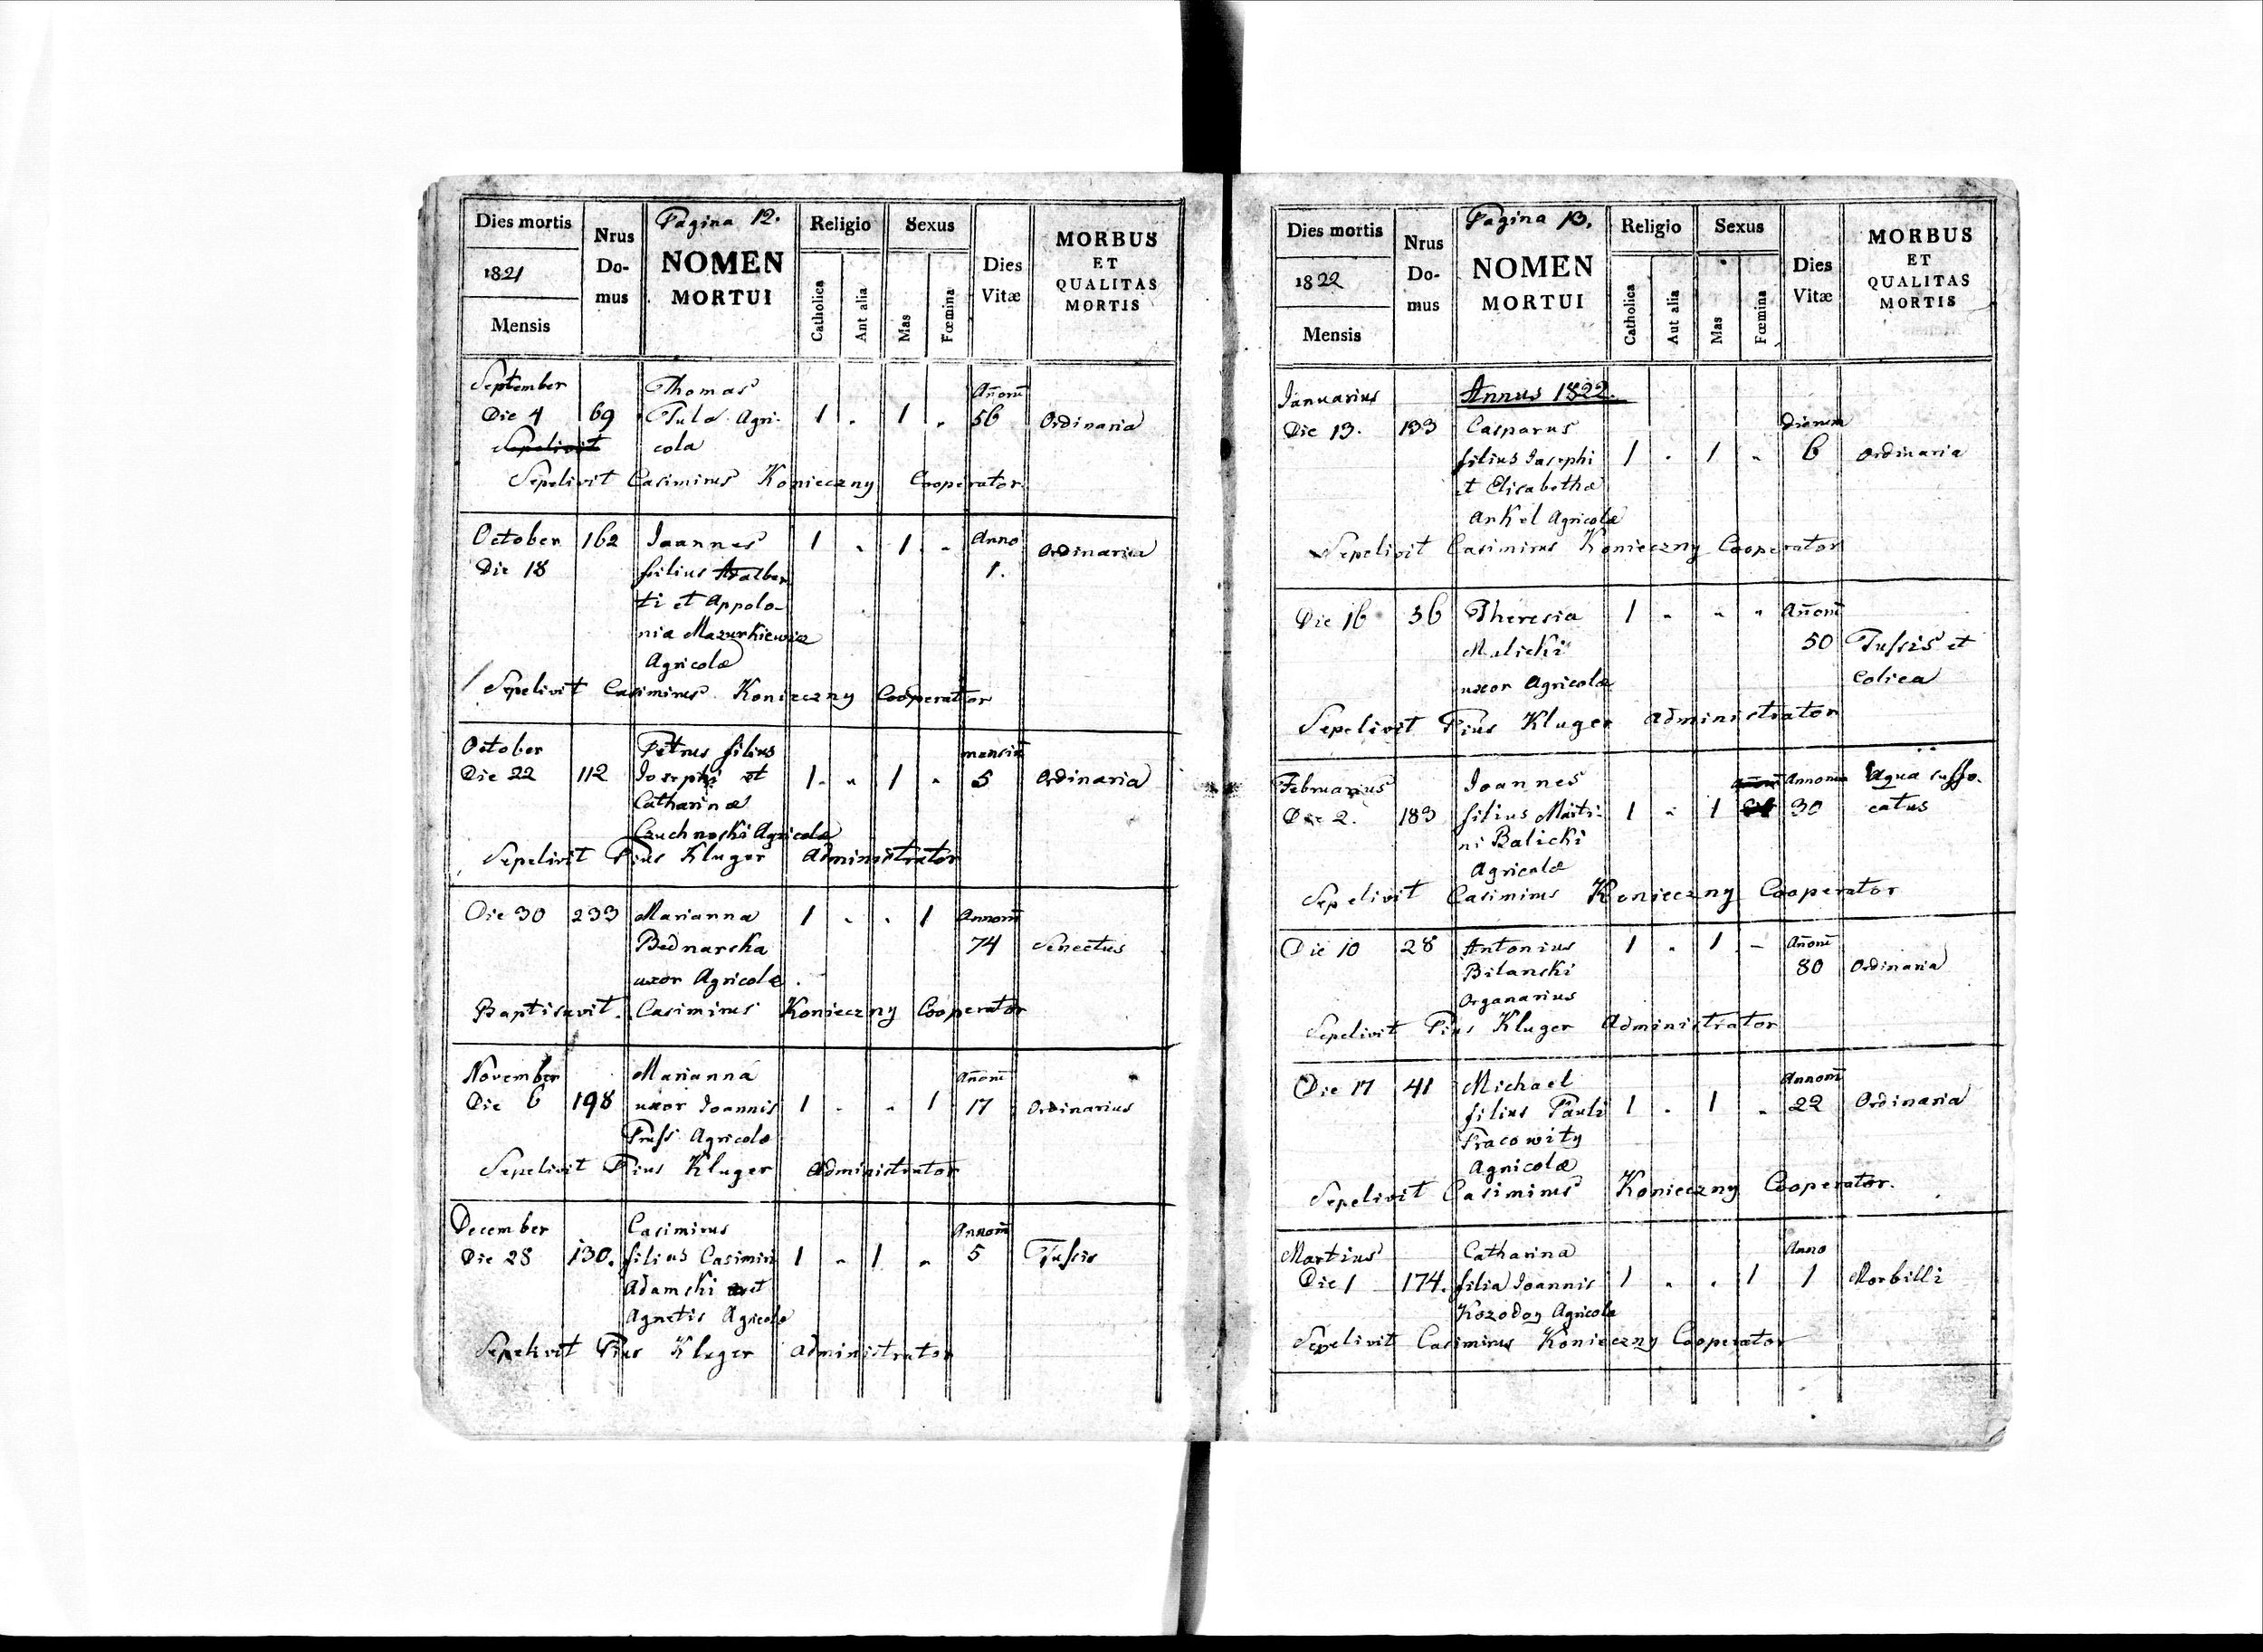 Dies mortis
1821
Mensis
Nrus
Do-
mus
Pagina 12.
NOMEN
MORTUI
Religio
Catholica
Aut alia
Sexus
Mas
Fœmina
Dies
Vitæ
MORBUS
ET
QUALITAS
MORTIS
September Thomas Añorũ
Die 4 69 Tula Agri- 1 . 1 . 56 Ordinaria
Sepelivit cola
Sepelivit Casimirus Konieczny Cooperator
October 162 Joannes 1 . 1 . Anno Ordinaria
Die 18 filius Adalber 1.
ti et Appolo-
nia Mazurkiewicz
Agricolæ
Sepelivit Casimirus Konieczny Cooperator
October Petrus filius mensiũ
Die 22 112 Josephi et 1. " 1 " 5 Ordinaria
Catharinæ
Czuchnoski Agricolæ
Sepelivit Pius Kluger Administrator
Die 30 233 Marianna 1 . . 1 Annorũ
Bednarska 74 Senectus
uxor Agricolæ
Baptisavit Casimirus Konieczny Cooperator
November Marianna Añorũ
Die 6 198 uxor Joannis 1 . " 1 17 Ordinarius
Pruss Agricolæ
Sepelivit Pius Kluger Administrator
December Casimirus Annorũ
Die 28 130. filius Casimiri 1 " 1 " 5 Tussis
Adamski et
Agnetis Agricolæ
Sepelivit Pius Kluger Administrator
Dies mortis
1822
Mensis
Nrus
Do-
mus
Pagina 13.
NOMEN
MORTUI
Religio
Catholica
Aut alia
Sexus
Mas
Fœmina
Dies
Vitæ
MORBUS
ET
QUALITAS
MORTIS
Januarius Annus 1822.
Die 13. 133 Casparus Dierum
filius Josephi 1 . 1 " 6 Ordinaria
et Elisabethæ
Ankel Agricolæ
Sepelivit Casimirus Konieczny Cooperator
Die 16 36 Theresia 1 " " " Añorũ
Malicki 50 Tussis et
uxor Agricolæ Colica
Sepelivit Pius Kluger Administrator
Februarius Joannes Annorum Aqua suffo-
Die 2. 183 filius Marti- 1 " 1 30 catus
ni Balicki
Agricolæ
Sepelivit Casimirus Konieczny Cooperator
Die 10 28 Antonius 1 . 1 - Añorũ
Bilanski 80 Ordinaria
Organarius
Sepelivit Pius Kluger Administrator
Die 17 41 Michael Annorũ
filius Pauli 1 . 1 " 22 Ordinaria
Pracowity
Agricolæ
Sepelivit Casimirus Konieczny Cooperator.
Martius Catharina Anno
Die 1 174. filia Joannis 1 . . 1 1 Morbilli
Kozodoy Agricolæ
Sepelivit Casimirus Konieczny Cooperator